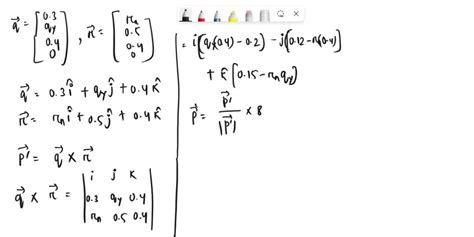 q⃗ = [0.3 qy 0.4 0], r⃗ = [rn 0.5 0.4 0]
q⃗ = 0.3î + qyĵ + 0.4k̂
r⃗ = rnî + 0.5ĵ + 0.4k̂
p⃗' = q⃗ × r⃗
q⃗ × r⃗ = | i j k
0.3 qy 0.4
rn 0.5 0.4 |
= i(qy(0.4) - 0.2) - j(0.12 - rn(0.4)
+ k̂[0.15 - rnqy)
p⃗ = p⃗' / |p⃗'| × 8